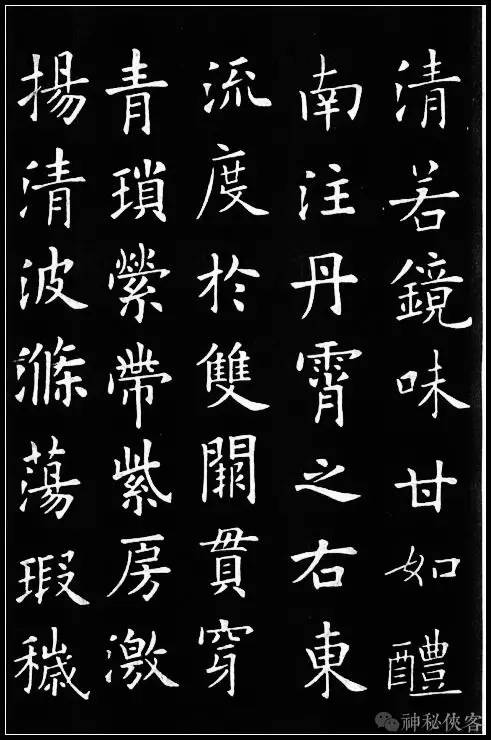 清若鏡味甘如醴
南注丹霄之右東
流度於雙闕貫穿
青瑣縈帶紫房激
揚清波滌蕩瑕穢
神秘俠客